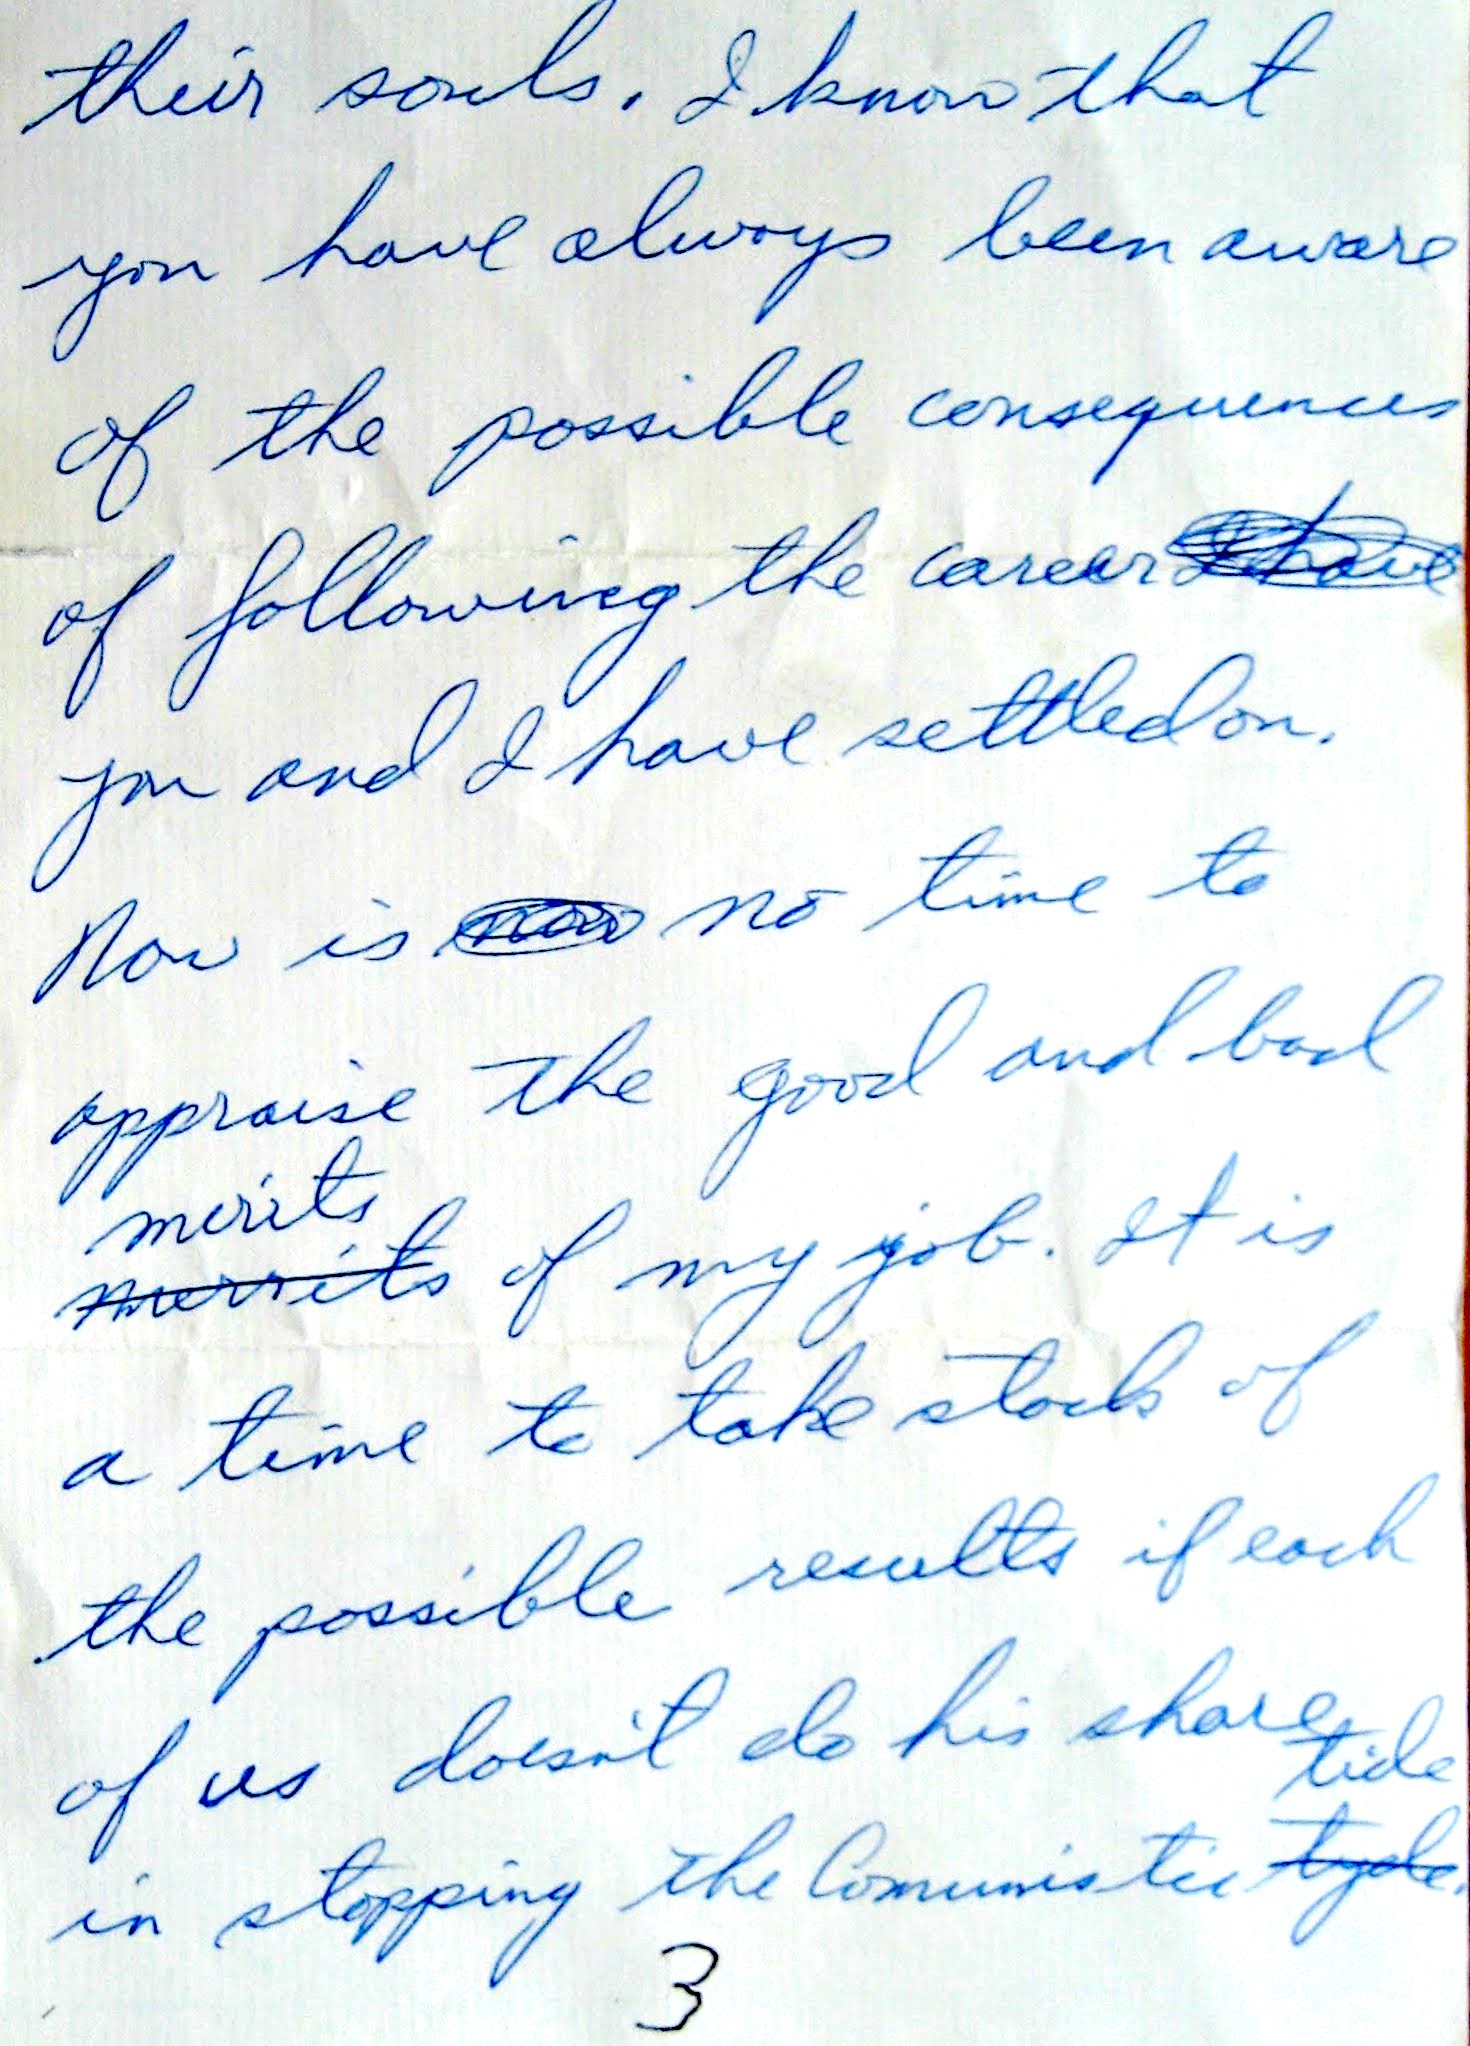 their souls. I know that
you have always been aware
of the possible consequences
of following the career I have
you and I have settled on.
Now is now no time to
appraise the good and bad
merits
merrits of my job. It is
a time to take stock of
the possible results if each
of us doesn't do his share
tide
in stopping the Comunistic tyde.
3